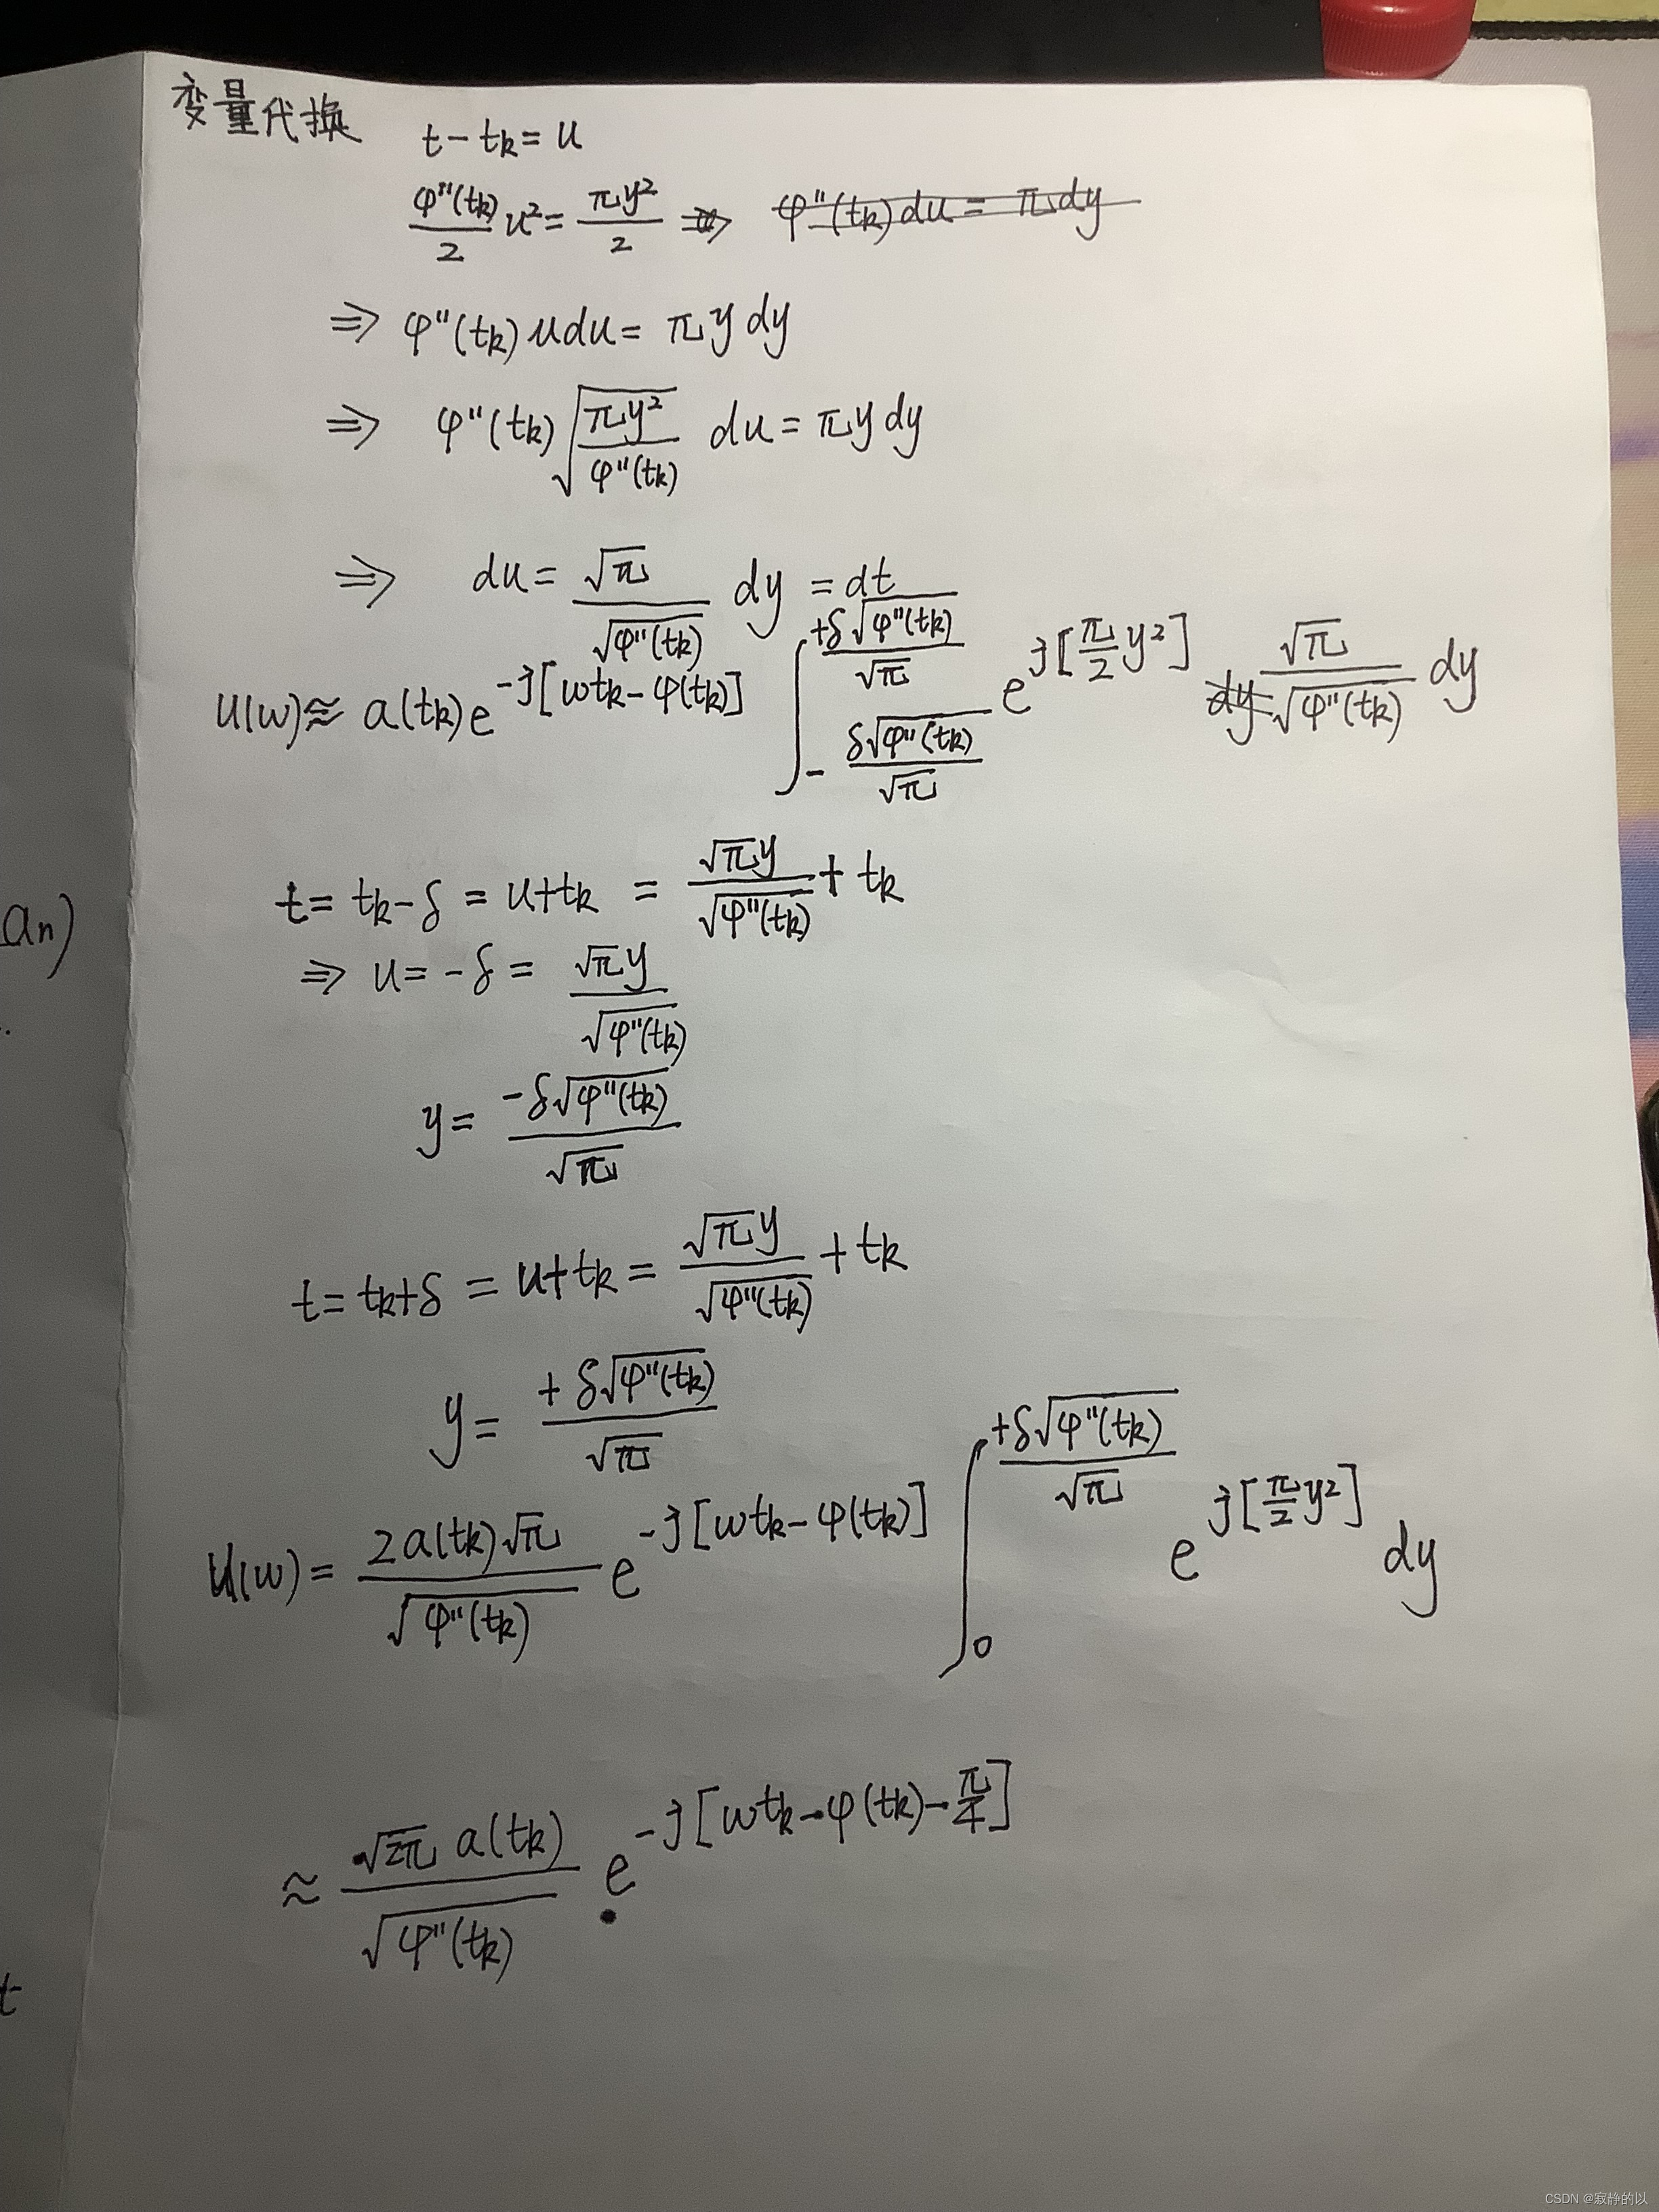 变量代换
t - tk = u
φ''(tk)/2 u² = πy²/2 ⇒ φ''(tk)du = πdy
⇒ φ''(tk)udu = πy dy
⇒ φ''(tk)√(πy²/φ''(tk)) du = πy dy
⇒ du = √π/√φ''(tk) dy = dt
U(w) ≈ a(tk)e^{-j[wtk-φ(tk)]} ∫_{-δ√φ''(tk)/√π}^{+δ√φ''(tk)/√π} e^{j[π/2 y²]} dy= √π/√φ''(tk) dy
t = tk-δ = u+tk = √πy/√φ''(tk) + tk
an)
⇒ u = -δ = √πy/√φ''(tk)
y = -δ√φ''(tk)/√π
t = tk+δ = u+tk = √πy/√φ''(tk) + tk
y = +δ√φ''(tk)/√π
U(w) = 2a(tk)√π/√φ''(tk) e^{-j[wtk-φ(tk)]} ∫_0^{+δ√φ''(tk)/√π} e^{j[π/2 y²]} dy
≈ √2π a(tk)/√φ''(tk) e^{-j[wtk-φ(tk)-π/4]}
t
CSDN @寂静的以